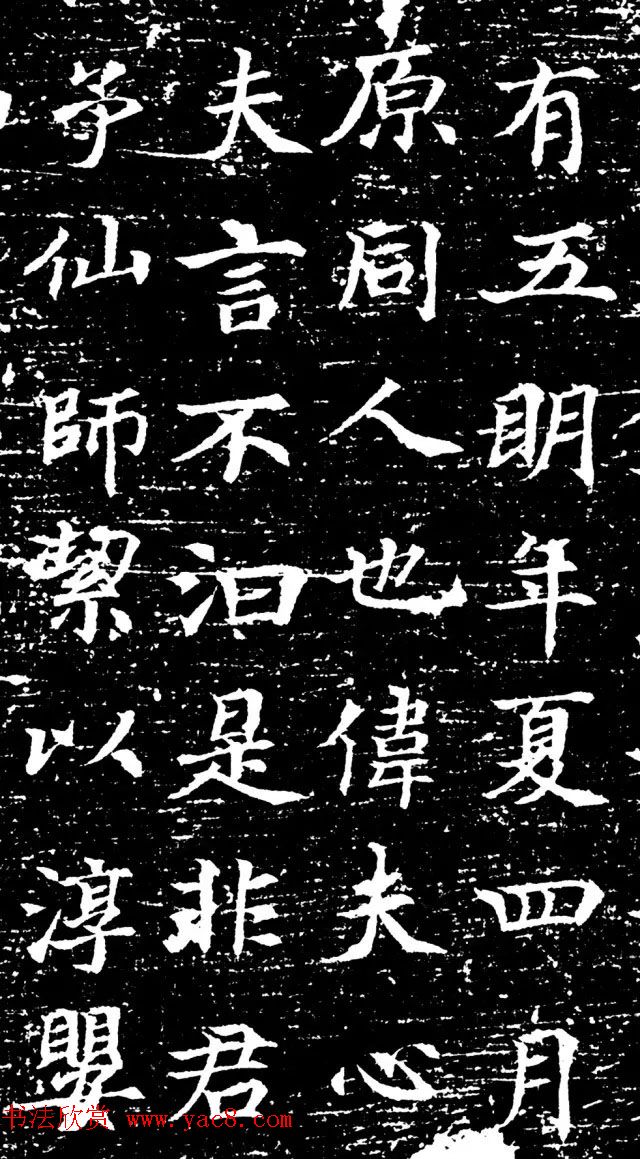 有五明年夏四月
原同人也偉夫心
夫言不汩是非君
仙師絜以淳
书法欣赏 www.yac8.com